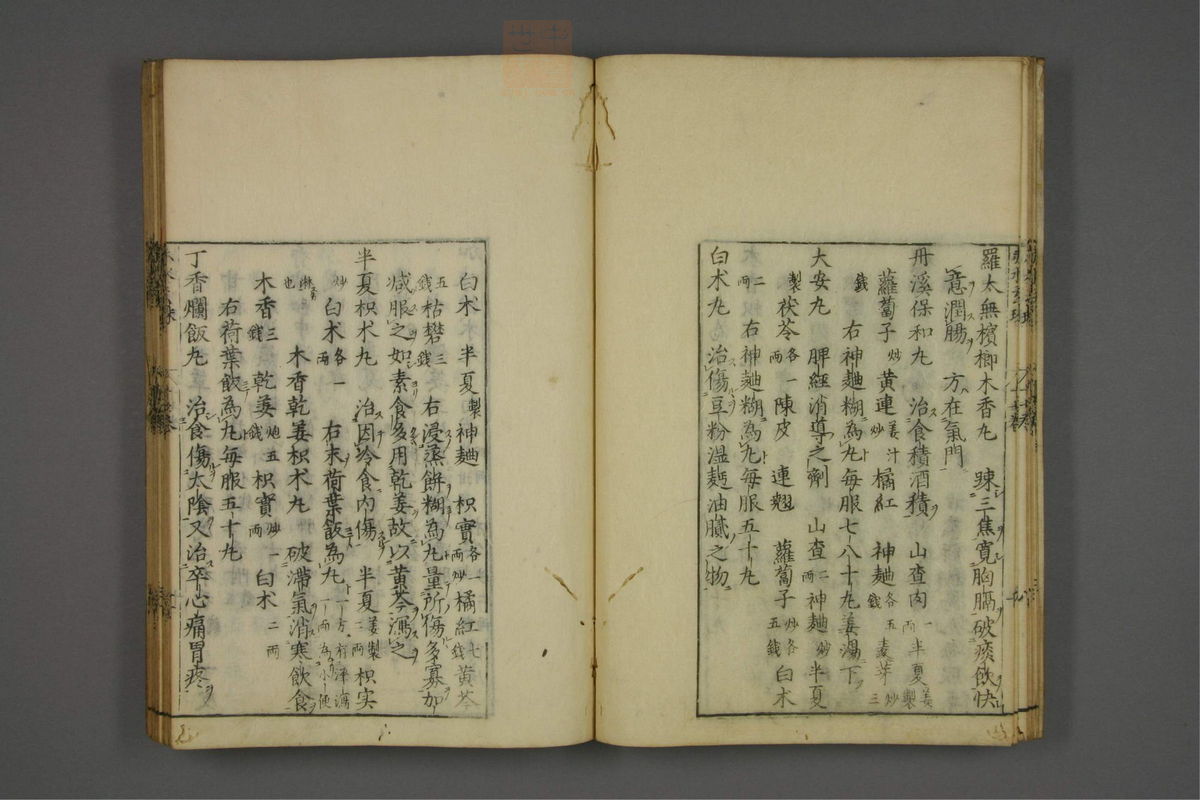 羅太無檳榔木香丸　踈三焦寛胸膈破痰飲快
意潤腸　方在氣門
丹溪保和丸　治食積酒積　山查肉一兩半夏姜製
蘿蔔子炒黄連姜汁炒橘紅　神麯各五錢麦芽炒三
錢　右神麯糊為丸毎服七八十丸姜湯下
大安丸　脾經消導之劑　山查二兩神麯炒半夏
製茯苓各一兩陳皮　連翹　蘿蔔子炒各五錢白术
二兩　右神麯糊為丸毎服五十丸
白术丸　治傷豆粉湿麺油膩之物
白术　半夏製神麯　枳實各一兩炒橘紅七錢黄芩
五錢枯礬三錢　右浸蒸餅糊為丸量所傷多寡加
减服之如素食多用乾姜故以黄芩瀉之
半夏枳术丸　治因冷食内傷　半夏姜製二兩枳实
炒白术各一兩　右末荷葉飯為丸一方有澤瀉一兩為小便
淋也　木香乾姜枳术丸　破滞氣消寒飲食
木香三錢　乾姜炮五錢枳實炒一兩白术二兩
右荷葉飯為丸毎服五十丸
丁香爛飯丸　治食傷太陰又治卒心痛胃疼